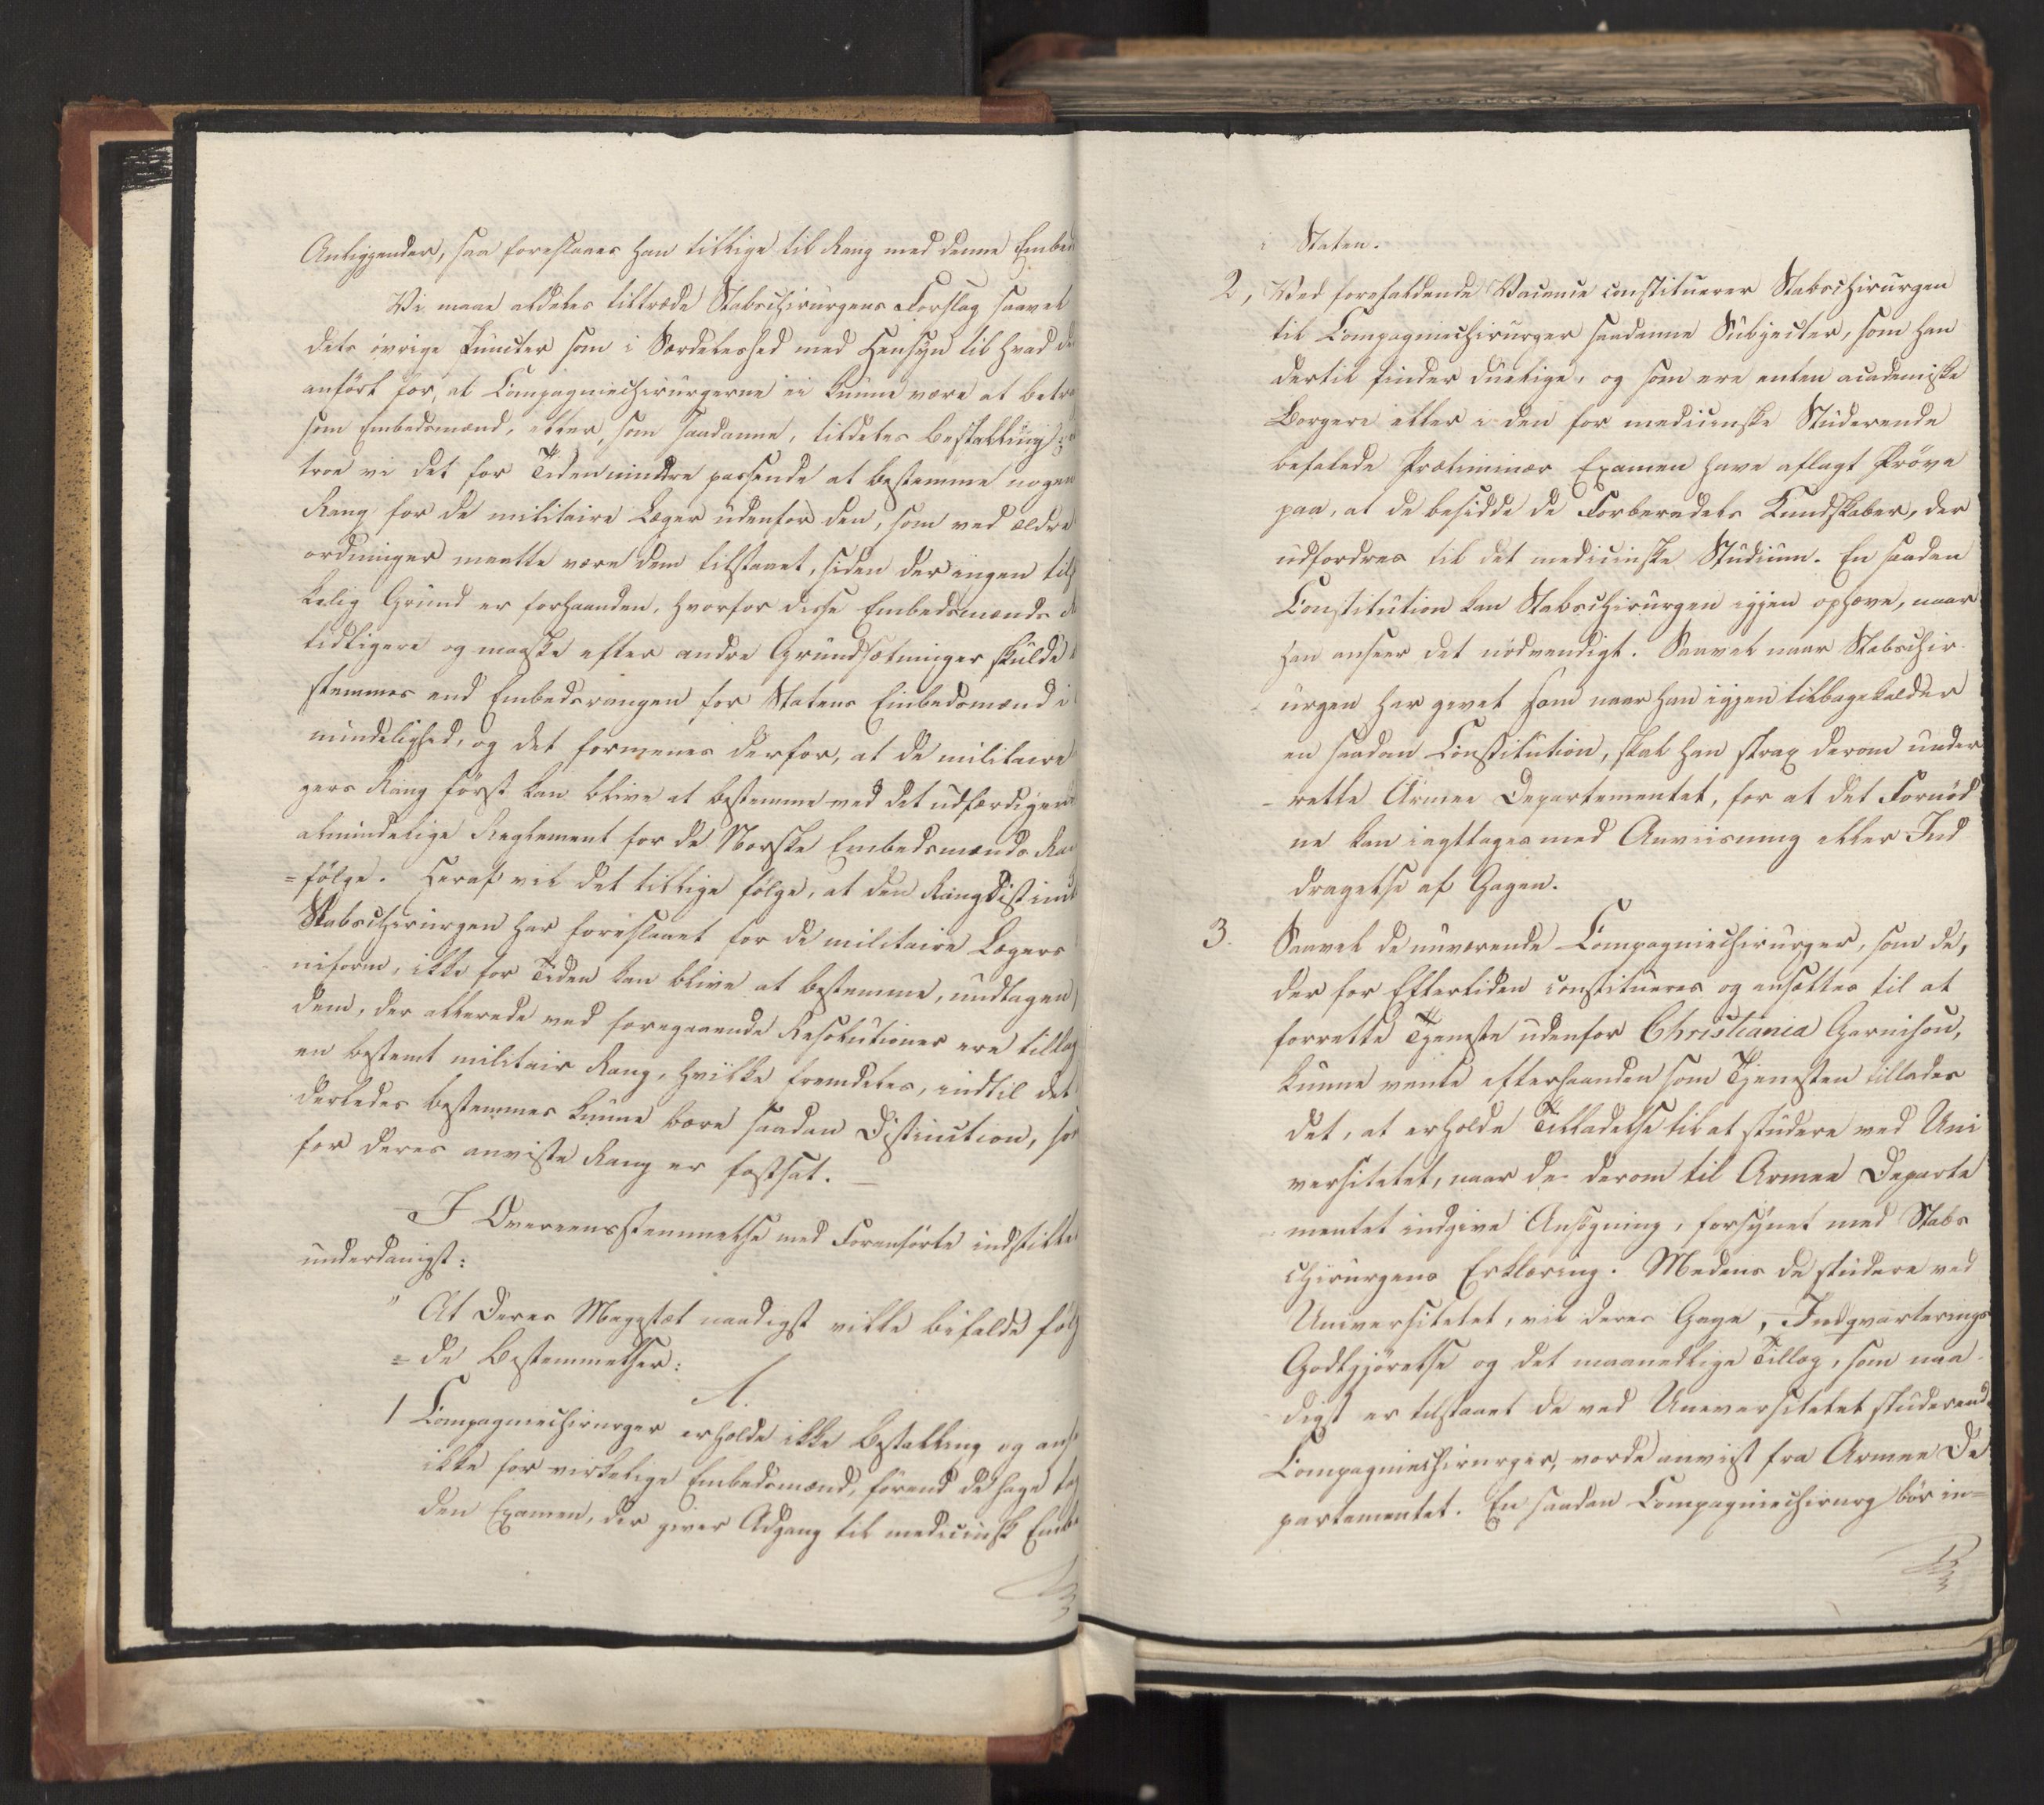 Anliggender, saa foreslaaes han tillige til Rang med denne Embed
Vi maae aldeles tiltræde Stabschirurgens Forslag saavel
dets øvrige Puncter som i Særdeleshed med Hensyn til hvad de
anført for, at Compagniechirurgerne ei kunne være at betra
som Embedsmænd, eller, som saadanne, tildeles Bestalling;
troe vi det for Tiden mindre passende at bestemme nogen
Rang for de militaire Læger udenfor den, som ved ældre
ordninger maatte være dem tilstaaet, siden der ingen til
kelig Grund er forhaanden, hvorfor disse Embedsmænds
tidligere og maaske efter andre Grundsætninger skulde
stemmes end Embedsrangen for Statens Embedsmænd i
mindelighed, og det formenes derfor, at de militaire
gers Rang først kan blive at bestemme ved det udfærdigen
almindelige Reglement for de Norske Embedsmænds Ra
=følge. Heraf vil det tillige følge, at den Rangdistinct
Stabschirurgen har foreslaaet for de militaire Lægers
niform, ikke for Tiden kan blive at bestemme, undtagen
dem, der allerede ved foregaaende Resolutioner ere tillag
en bestemt militair Rang, hvilke fremdeles, indtil det
derledes bestemmes kunne bære saadan Distinction, so
for deres anviste Rang er fastsat. —
I Overeensstemmelse med Foranførte indstilles
underdanigst:
" At Deres Majestæt naadigst ville bifalde følg
= de Bestemmelser:
A.
1 Compagniechirurger erholde ikke Bestalling og ans
ikke for virkelige Embedsmænd, førend de have ta
den Examen, der giver Adgang til medicinsk Emb
i Staten.
2, Ved forefaldende Vacance constituerer Stabschirurgen
til Compagniechirurger saadanne Subjecter, som han
dertil finder duelige, og som ere enten academiske
Borgere eller i den for medicinske Studerende
befalede Præliminær Examen have aflagt Prøve
paa, at de besidde de Forberedels Kundskaber, der
udfordres til det medicinske Studium. En saadan
Constitution kan Stabschirurgen igjen ophæve, naar
han anseer det nødvendigt. Saavel naar Stabschir-
urgen har givet som naar han igjen tilbagekalder
en saadan Constitution, skal han strax derom under
- rette Armee Departementet, for at det Fornød
ne kan iagttages med Anviisning eller Ind
dragelse af Gagen.
3. Saavel de nuværende Compagniechirurger, som de,
der for Eftertiden constitueres og ansættes til at
forrette Tjeneste udenfor Christiania Garnison,
kunne vente efterhaanden som Tjenesten tillader
det, at erholde Tilladelse til at studere ved Uni
versitetet, naar de derom til Armee Departe
- mentet indgive Ansøgning, forsynet med Stabs
chirurgens Erklæring. Medens de studere ved
Universitetet, vil deres Gage, Indqvarterings
Godtgjørelse og det maanedlige Tillæg, som naa
- digst er tilstaaet de ved Universitetet studerende
Compagniechirurger, vorde anvist fra Armee De
partementet. En saadan Compagniechirurg bør in=